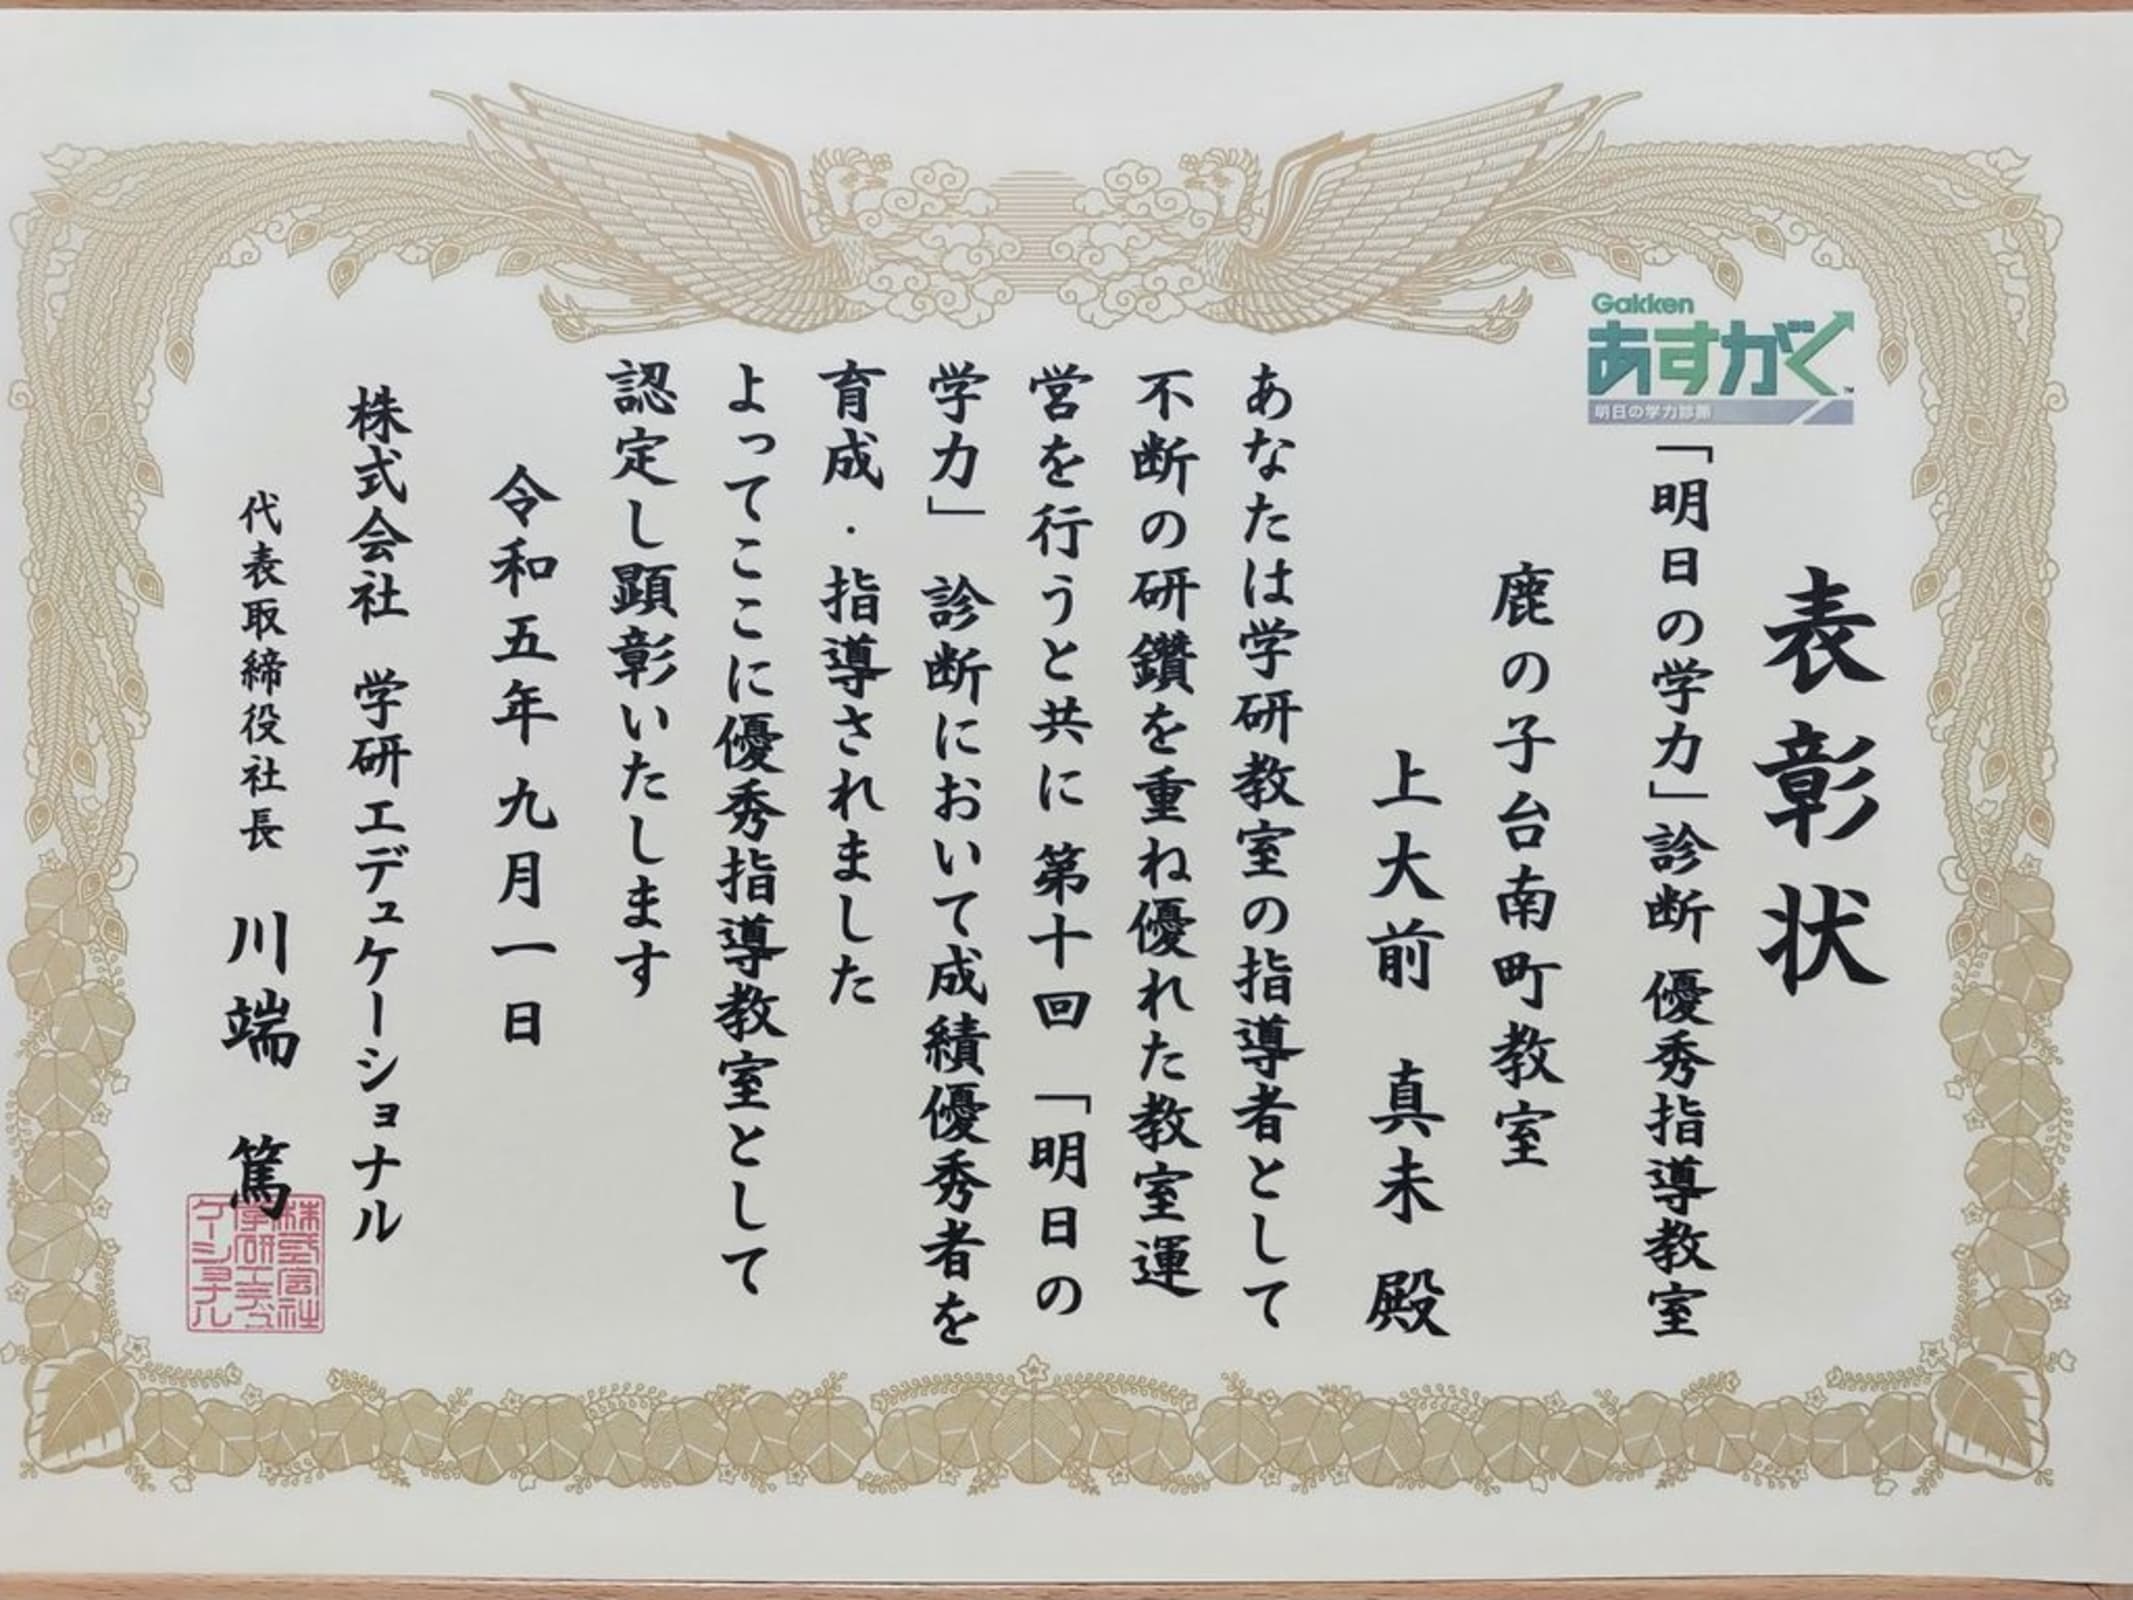 表彰状
Gakken
あすがく
明日の学力診断
「明日の学力」診断 優秀指導教室
鹿の子台南町教室
上大前 真未 殿
あなたは学研教室の指導者として
不断の研鑽を重ね優れた教室運
営を行うと共に 第十回 「明日の
学力」 診断において成績優秀者を
育成・指導されました
よってここに優秀指導教室として
認定し顕彰いたします
令和五年九月一日
株式会社 学研エデュケーショナル
代表取締役社長 川端 篤
株式会社
学研エデュ
ケーショナル